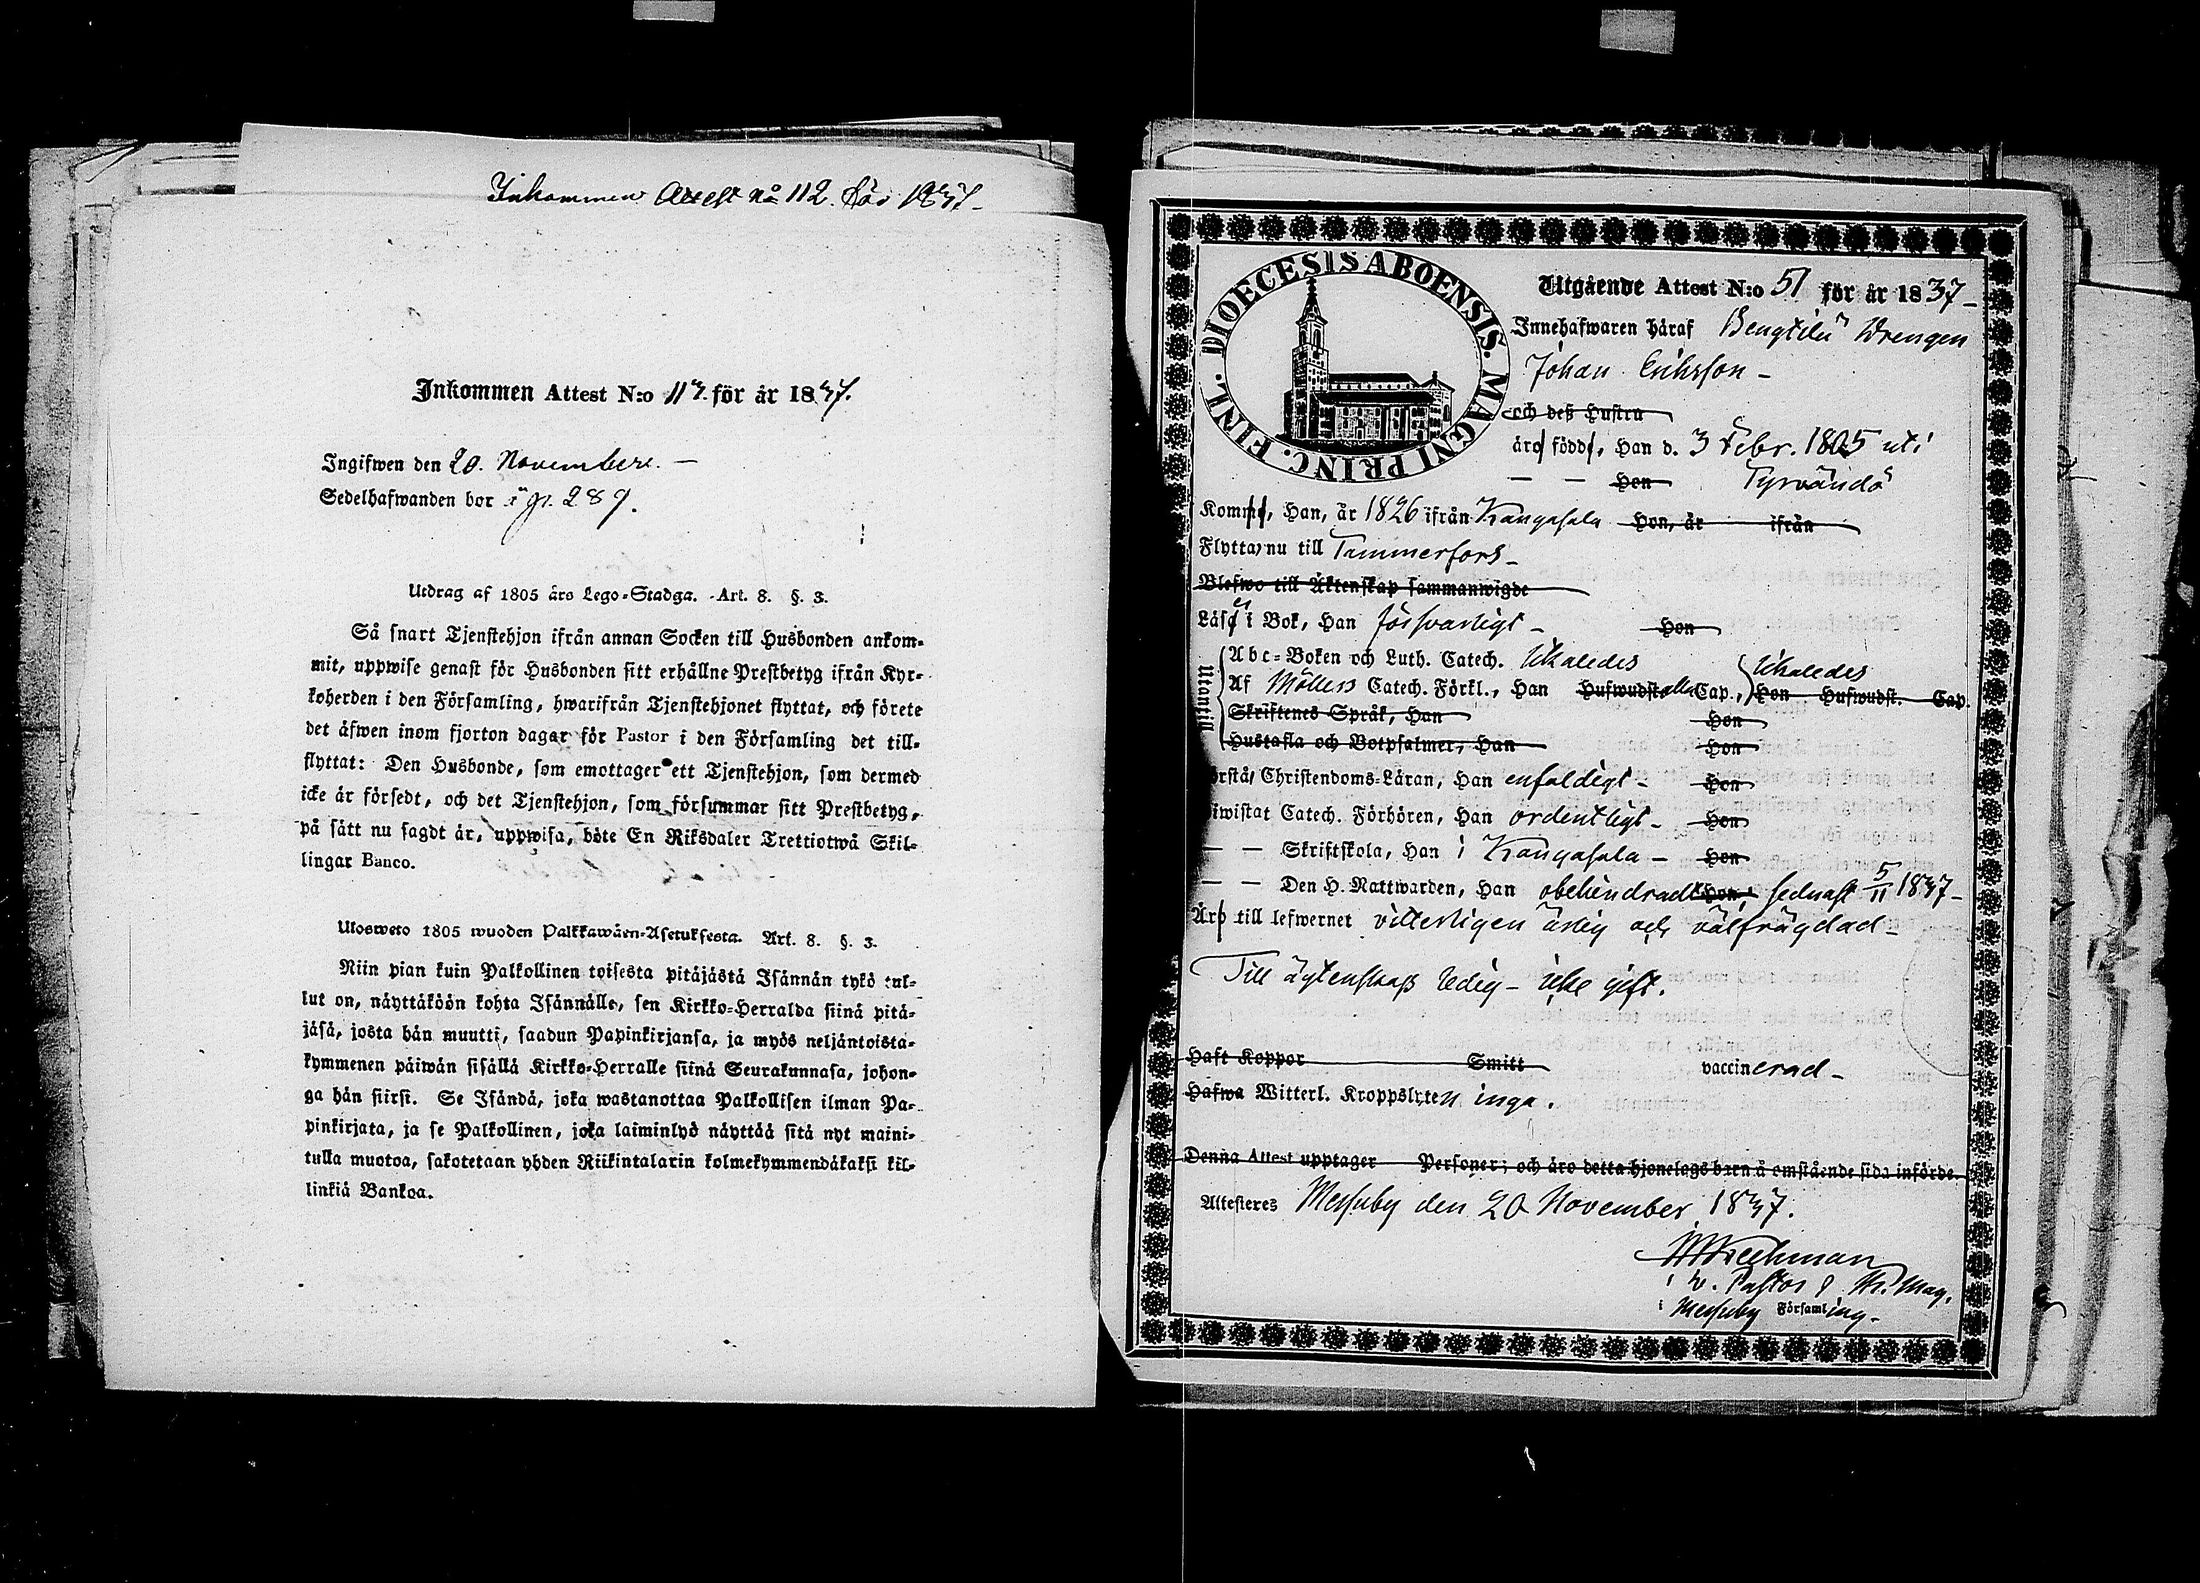 Inkommen Attest No 112. för 1837.
Inkommen Attest N:o 113. för år 1837.
Ingifwen den 20. November. —
Sedelhafwanden bor i gr. 289.
Utdrag af 1805 års Lego-Stadga. Art. 8. §. 3.
Så snart Tjenstehjon ifrån annan Socken till Husbonden ankom-
mit, uppwise genast för Husbonden sitt erhållne Prestbetyg ifrån Kyr-
koherden i den Församling, hwarifrån Tjenstehjonet flyttat, och förete
det äfwen inom fjorton dagar för Pastor i den Församling det till-
flyttat: Den Husbonde, som emottager ett Tjenstehjon, som dermed
icke är försedt, och det Tjenstehjon, som försummar sitt Prestbetyg,
på sätt nu sagdt är, uppwisa, böte En Riksdaler Trettiotwå Skil-
lingar Banco.
Ulosweto 1805 wuoden Palkkawäen-Asetuksesta. Art. 8. §. 3.
Niin pian kuin Palkollinen toisesta pitäjästä Isännän tykö tul-
lut on, näyttäköön kohta Isännälle, sen Kirkko-Herralda siinä pitä-
jäsä, josta hän muutti, saadun Papinkirjansa, ja myös neljäntoista-
kymmenen päiwän sisällä Kirkko-Herralle siinä Seurakunnasa, johon-
ga hän siirsi. Se Isändä, joka wastanottaa Palkollisen ilman Pa-
pinkirjata, ja se Palkollinen, joka laiminlyö näyttää sitä nyt maini-
tulla muotoa, sakotetaan yhden Riikintalarin kolmekymmendäkaksi kil-
linkiä Bankoa.
DIOECESIS ABOENSIS. MAGNI PRINC. FINL.
Utgående Attest N:o 51 för år 1837 —
Innehafwaren häraf Bengtilä Drengen
Johan Eriksson —
och deß Hustru
äro födde, Han d. 3 Febr. 1805 uti
— — Hon Tyrvändö
Kommo, Han, år 1826 ifrån Kangasala Hon, år ifrån
Flytta, nu till Tammerfors —
Blefwo till Äktenskap sammanwigde
Läsa i Bok, Han försvarligt — Hon
Utantill
Abc-Boken och Luth. Catech. likaledes
Af Möllers Catech. Förkl., Han Hufwudst. alla Cap., likaledes Hon Hufwudst. Cap.
Skriftenes Språk, Han Hon
Hustafla och Botpsalmer, Han Hon
örstå, Christendoms-Läran, Han enfaldigt — Hon
iwistat Catech. Förhören, Han ordentligt — Hon
— — Skriftskola, Han i Kangasala — Hon
— — Den H. Nattwarden, Han obehindradt Hon, sednast 5/11 1837 —
Äro till lefwernet vitterligen ärlig och välfrägdad —
Till ägtenskap ledig — icke gift.
Haft Koppor Smitt vaccinerad —
Hafwa Witterl. Kroppslyten inga.
Denna Attest upptager Personer; och äro detta hjonelags barn å omstående sida införde.
Attesteres Messuby den 20 November 1837.
v. Pastor
i Messuby Församling.